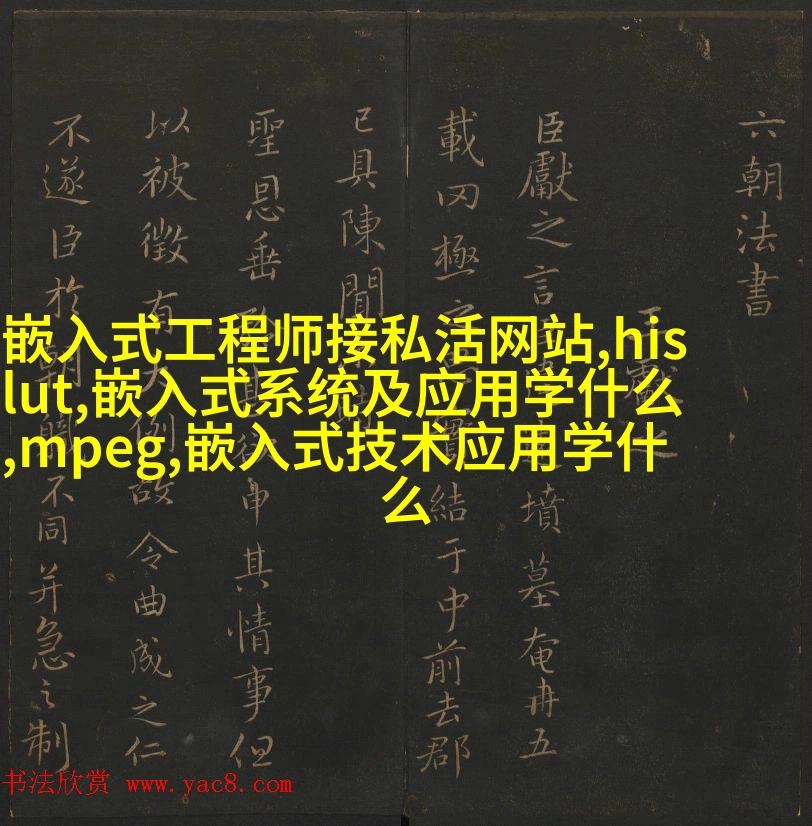 六朝法書
王獻之
臣獻之言
墳墓奄冉五
載罔極
結于中前去郡
已具陳聞
聖恩垂
申其情事但
以被徵有
例故令曲成之仁
不遂臣於
不同并急之制
嵌入式工程师接私活网站,his
lut,嵌入式系统及应用学什么
,mpeg,嵌入式技术应用学什
么
书法欣赏 www.yac8.com